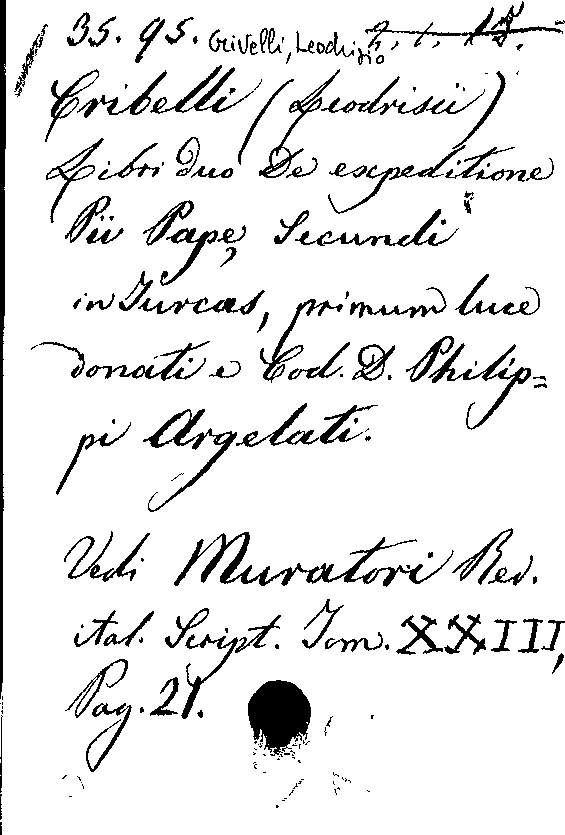 35. 95. Crivelli, Leodrisio 2. 1. 15.
Cribelli (Leodrisii)
Libri duo De expeditione
Pii Papę Secundi
in Turcas, primum luce
donati e Cod. D. Philip=
pi Argelati.
Vedi Muratori Rer.
ital. Script. Tom. XXIII,
Pag. 21.